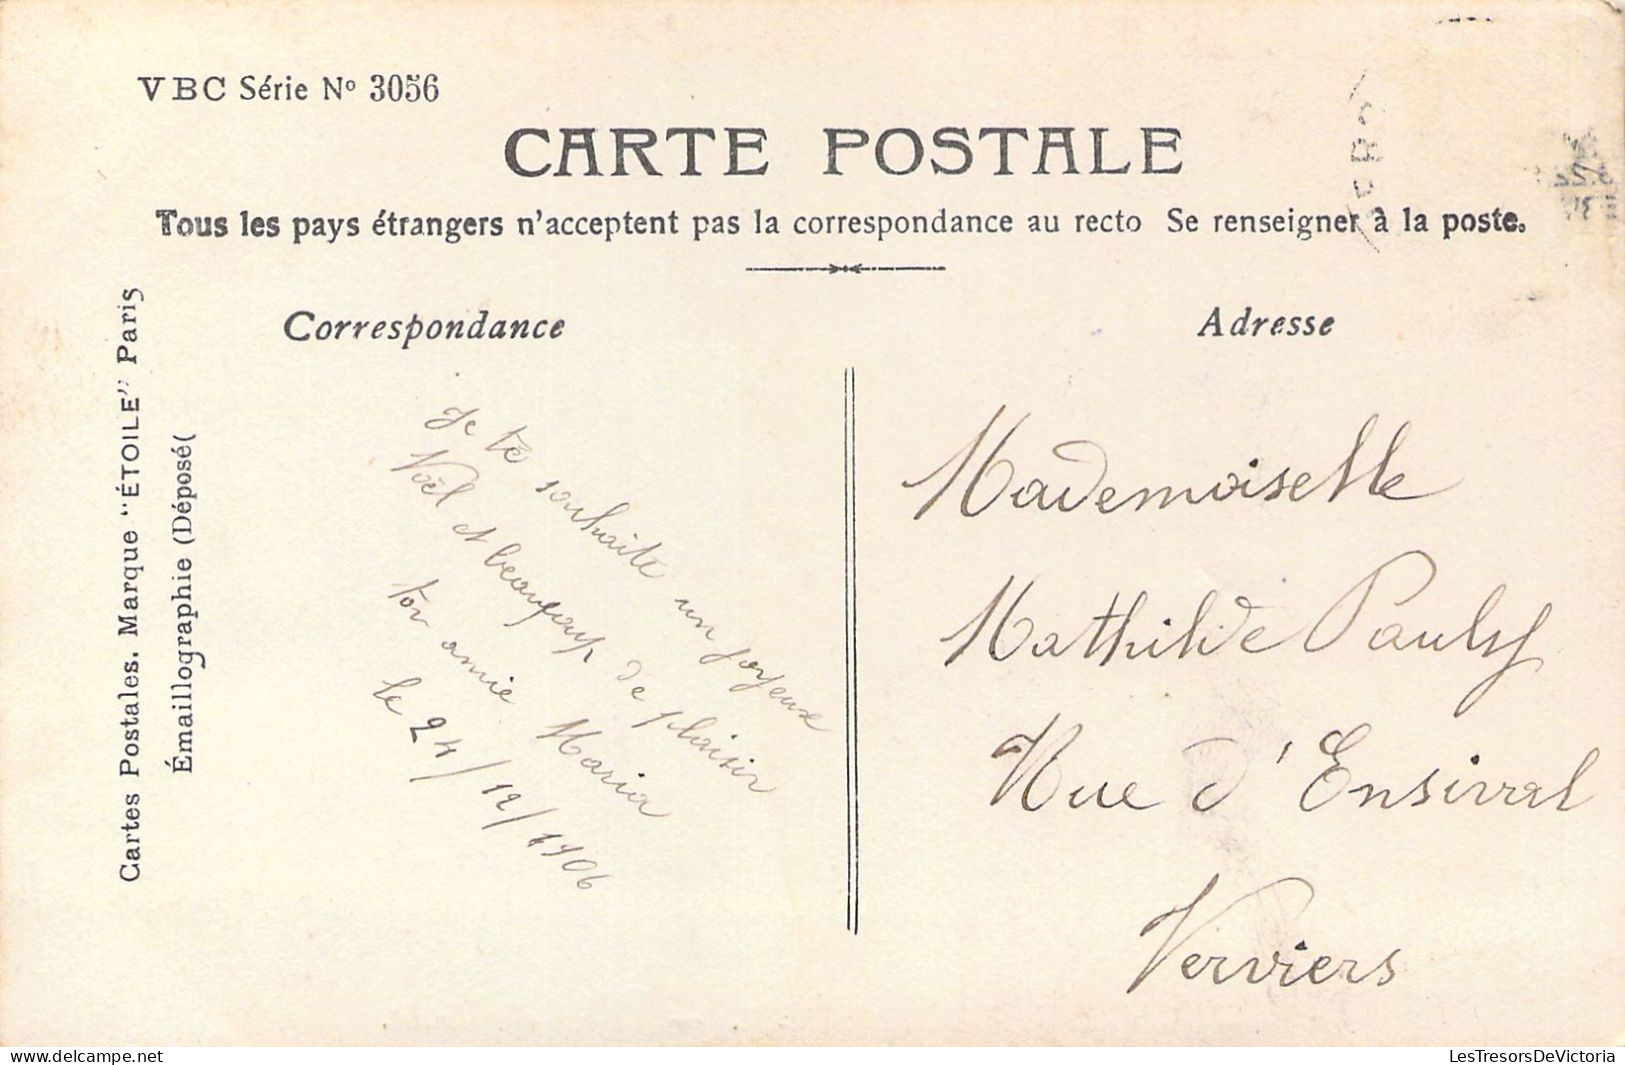 VBC Série Nº 3056
CARTE POSTALE
Tous les pays étrangers n'acceptent pas la correspondance au recto Se renseigner à la poste.
Cartes Postales. Marque "ÉTOILE" Paris
Émaillographie (Déposé(
Correspondance
Je te souhaite un joyeux
Noël et beaucoup de plaisir
ton amie Maria
le 24/12/1906
Adresse
Mademoiselle
Mathilde Pauly
Rue d'Ensival
Verviers
delcampe.net
LesTresorsDeVictoria